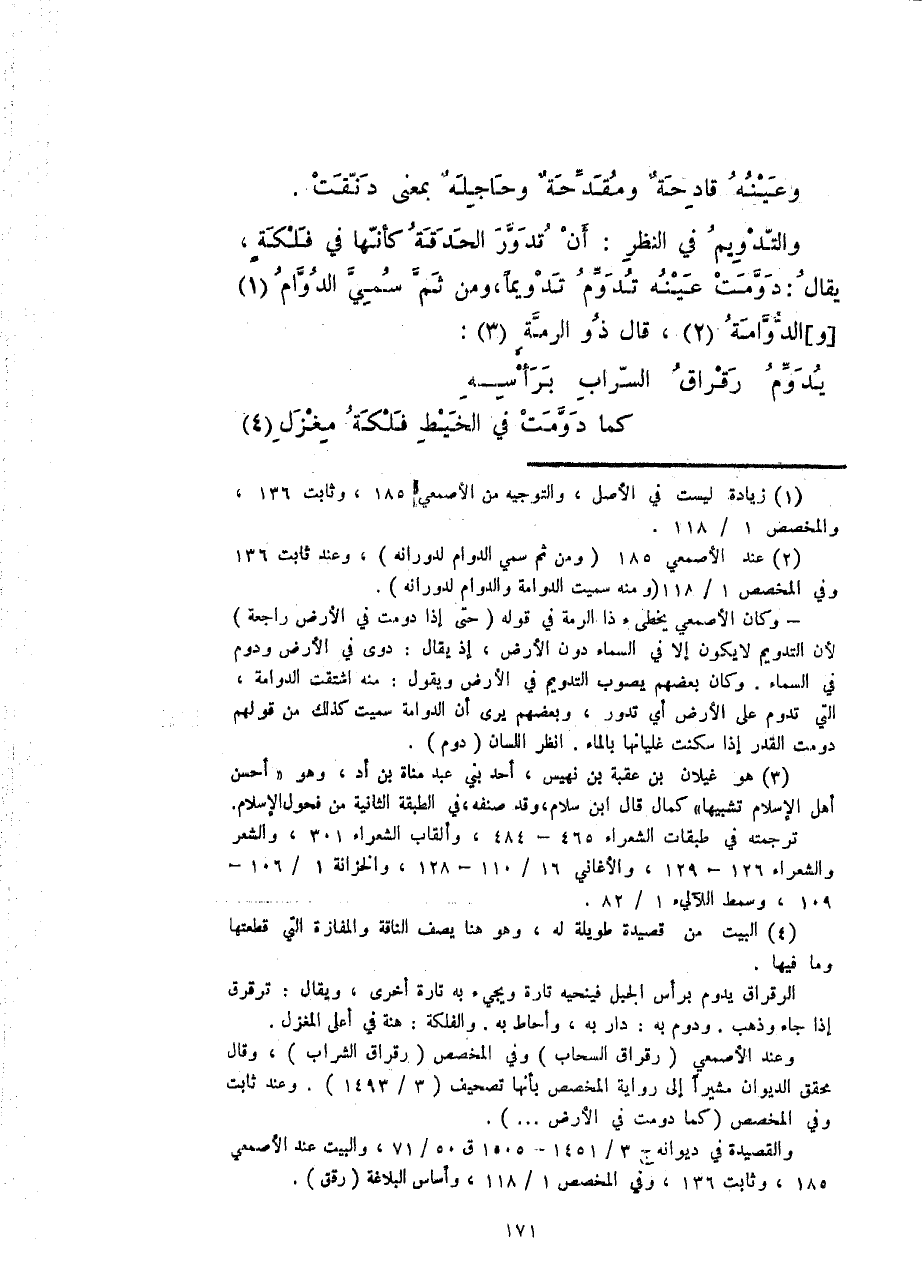 وعَيْنُهُ قادِحَةٌ ومُقَدِّحَةٌ وحَاجِلَةٌ بمعنى دَنّقَتْ .
والتّدْوِيمُ في النظرِ : أَنْ تُدَوَّرَ الحَدَقَةُ كأنّها في فَلْكَةٍ ،
يقالُ : دَوَّمَتْ عَيْنُه تُدَوِّمُ تَدْويماً ، ومن ثَمَّ سُمِيَّ الدُوَّامُ (١)
[و] الدُّوَّامَةُ (٢) ، قال ذُو الرمَّةِ (٣) :
يُدَوِّمُ رَقْراقُ السّرابِ بِرَأْسِهِ
كما دَوَّمَتْ في الخَيْطِ فَلْكَةُ مِغْزَلِ (٤)
(١) زيادة ليست في الأصل ، والتوجيه من الأصمعي ١٨٥ ، وثابت ١٣٦ ،
والمخصص ١ / ١١٨ .
(٢) عند الأصمعي ١٨٥ ( ومن ثم سمي الدوام لدورانه ) ، وعند ثابت ١٣٦
وفي المخصص ١ / ١١٨ (ومنه سميت الدوامة والدوام لدورانه ) .
– وكان الأصمعي يخطىء ذا الرمة في قوله ( حتى إذا دومت في الأرض راجعة )
لأن التدويم لايكون إلا في السماء دون الأرض ، إذ يقال : دوى في الأرض ودوم
في السماء . وكان بعضهم يصوب التدويم في الأرض ويقول : منه اشتقت الدوامة ،
التي تدوم على الأرض أي تدور ، وبعضهم يرى أن الدوامة سميت كذلك من قولهم
دومت القدر إذا سكنت غليانها بالماء . انظر اللسان ( دوم ) .
(٣) هو غيلان بن عقبة بن نهيس ، أحد بني عبد مناة بن أد ، وهو « أحسن
أهل الإسلام تشبيها» كمال قال ابن سلام ، وقد صنفه ، في الطبقة الثانية من فحول الإسلام.
ترجمته في طبقات الشعراء ٤٦٥ – ٤٨٤ ، وألقاب الشعراء ٣٠١ ، والشعر
والشعراء ١٢٦ – ١٢٩ ، والأغاني ١٦ / ١١٠ – ١٢٨ ، والخزانة ١ / ١٠٦ –
١٠٩ ، وسمط اللآليء ١ / ٨٢ .
(٤) البيت من قصيدة طويلة له ، وهو هنا يصف الناقة والمفازة التي قطعتها
وما فيها .
الرقراق يدوم برأس الجبل فينحيه تارة ويجيء به تارة أخرى ، ويقال : ترقرق
إذا جاء وذهب . ودوم به : دار به ، وأحاط به . والفلكة : هنة في أعلى المغزل .
وعند الأصمعي ( رقراق السحاب ) وفي المخصص ( رقراق الشراب ) ، وقال
محقق الديوان مشيراً إلى رواية المخصص بأنها تصحيف ( ٣ / ١٤٩٣ ) . وعند ثابت
وفي المخصص (كما دومت في الأرض ... ) .
والقصيدة في ديوانه ج ٣ / ١٤٥١ – ١٥٠٥ ق ٥٠ / ٧١ ، والبيت عند الأصمعي
١٨٥ ، وثابت ١٣٦ ، وفي المخصص ١ / ١١٨ ، وأساس البلاغة ( رقق ) .
١٧١